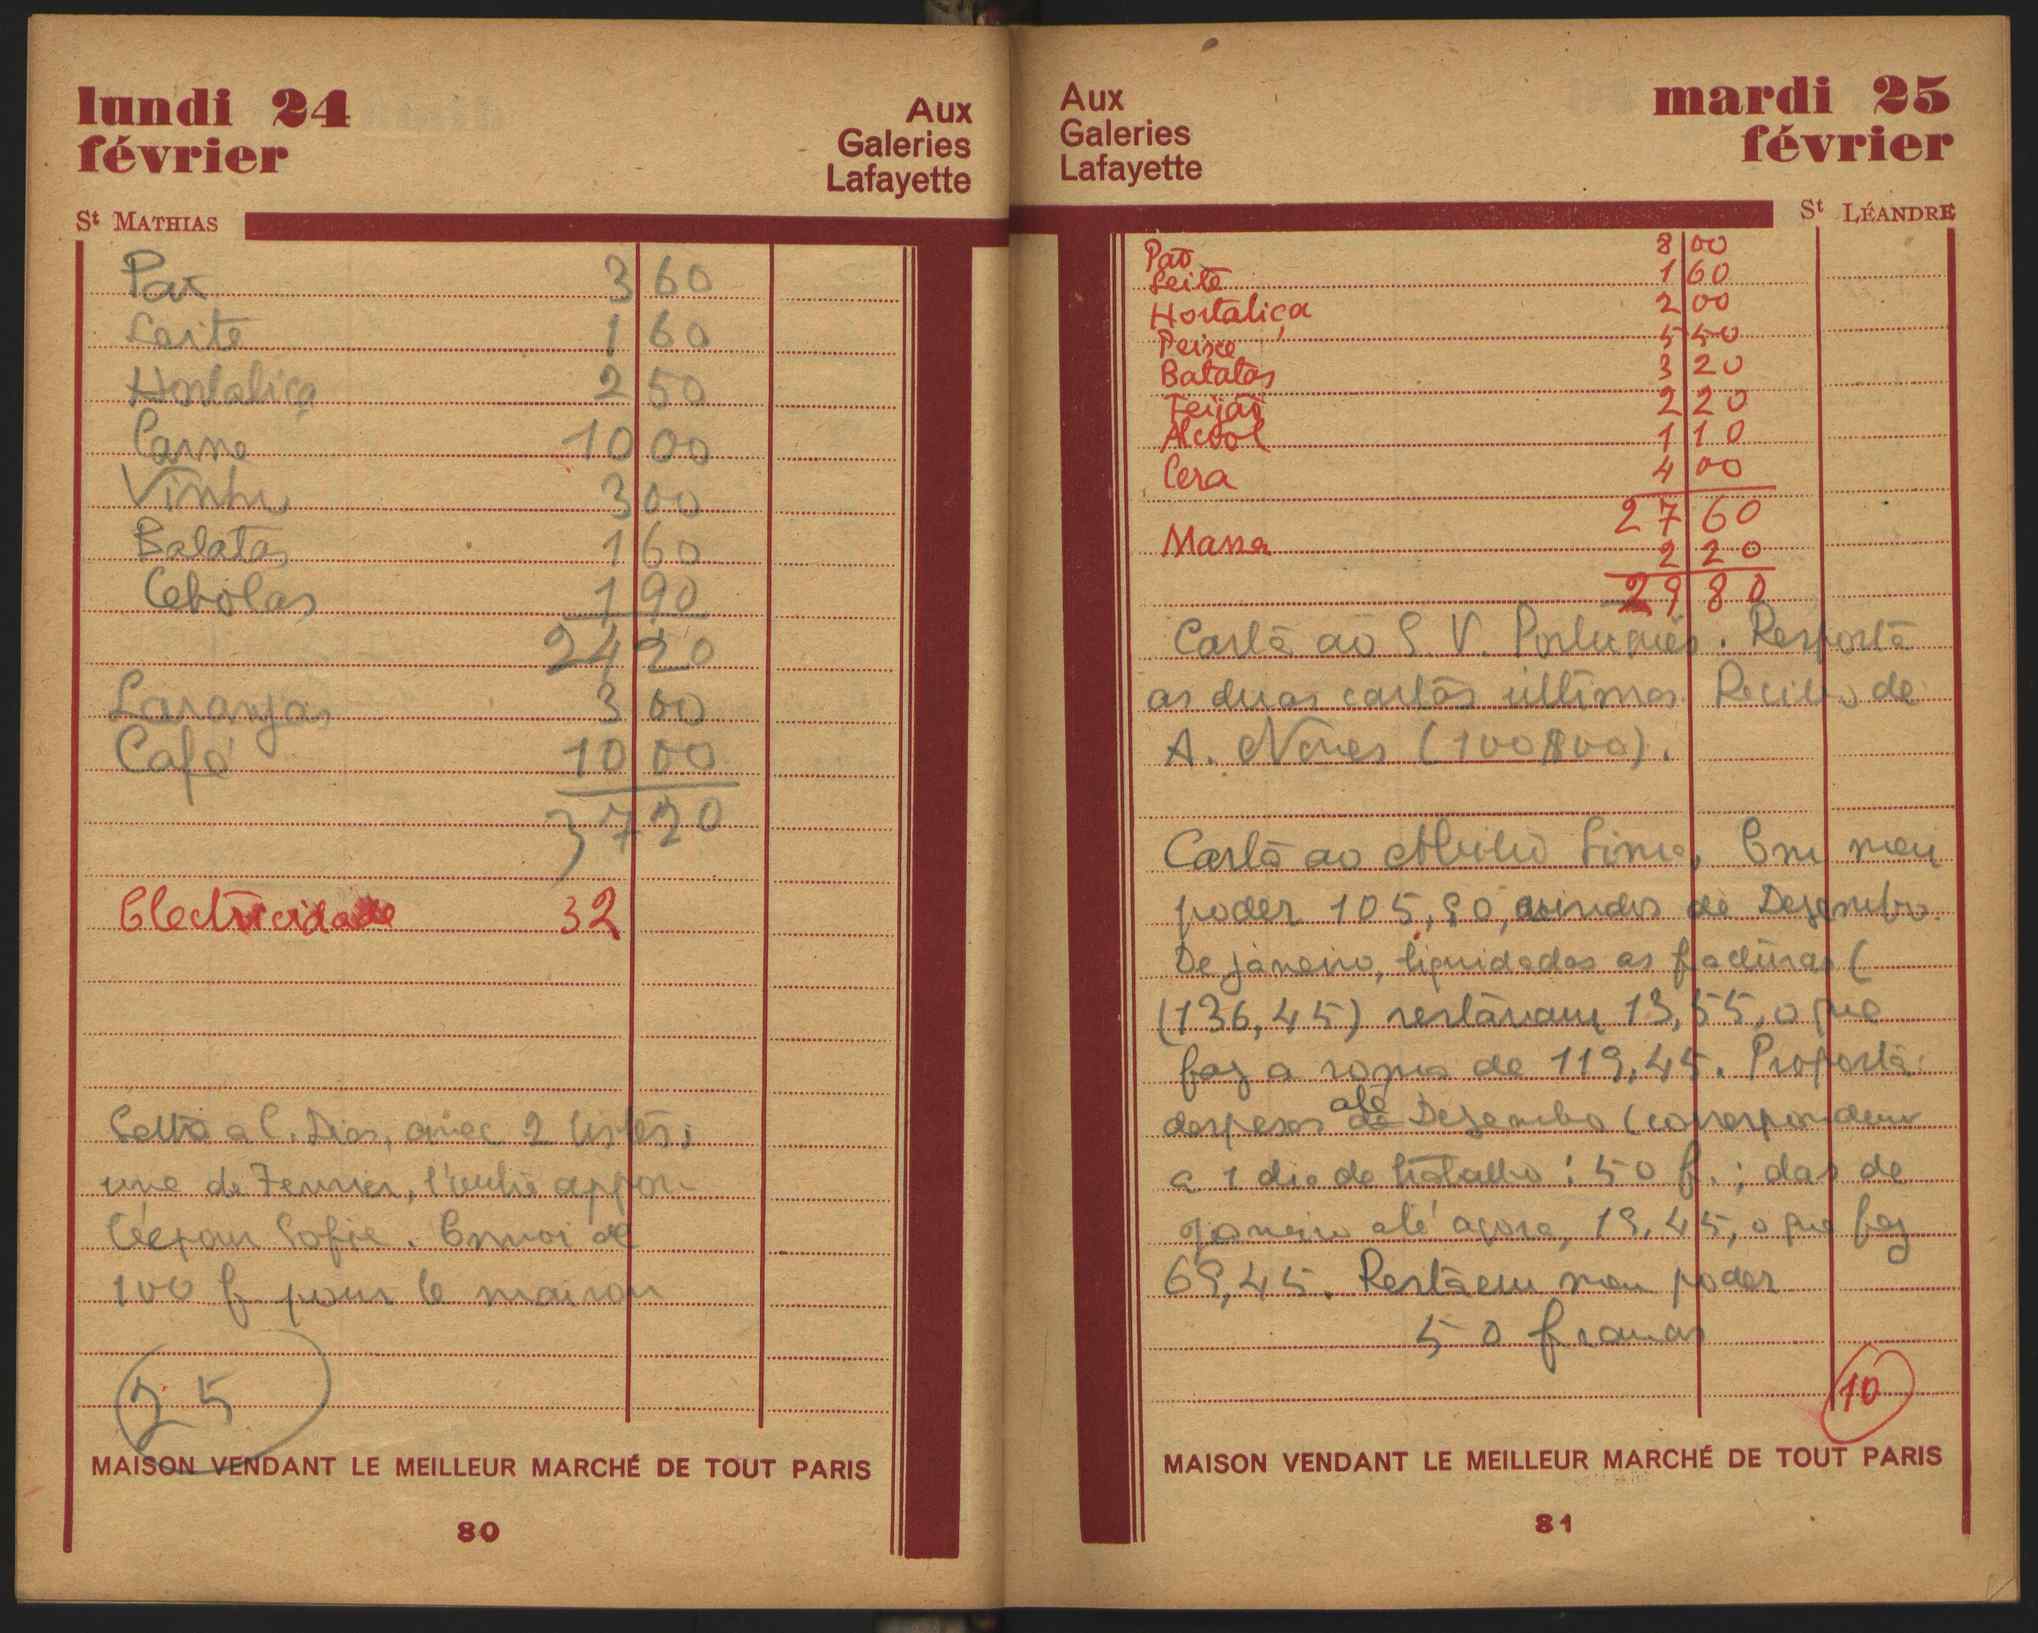 lundi 24
février
Aux
Galeries
Lafayette
St MATHIAS
Pão 3 60
Leite 1 60
Hortaliça 2 50
Carne 10 00
Vinho 3 00
Batatas 1 60
Cebolas 1 90
24 20
Laranjas 3 00
Café 10 00
37 20
Electricidade 32
a C. Dias, avec 2 listes,
une de Fevrier, l'autre
pour Sofie. Envoi de
100 f pour la maison
25
MAISON VENDANT LE MEILLEUR MARCHÉ DE TOUT PARIS
80
Aux
Galeries
Lafayette
mardi 25
février
St LÉANDRE
Pão 8 00
Leite 1 60
Hortaliça 2 00
Peixe 5 50
Batatas 3 20
Feijão 2 20
Alcool 1 10
Cera 4 00
27 60
Massa 2 20
29 80
Carta ao S. V. Português. Resposta
as duas cartas ultimas. Recibo de
A. Neves (100$00).
Carta ao Lima. Em meu
poder 105,90, vindos de Dezembro.
De janeiro, liquidadas as facturas (
(136,45) restavam 13,55, o que
faz a soma de 119,45. Proposta:
despesas até Dezembro (correspondem
a 1 dia de trabalho: 50 f.; das de
janeiro até agora, 19,45, o que faz
69,45. Resta em meu poder
50 francos
10
MAISON VENDANT LE MEILLEUR MARCHÉ DE TOUT PARIS
81